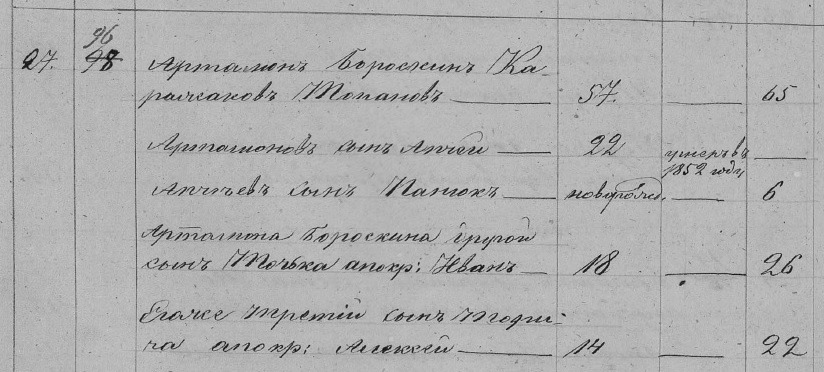 96
27. 98 Артамонъ Бороскинъ Ка-
ралкаковъ Топановъ 57. 65
Артамоновъ сынъ Апчей 22 умеръ въ
1852 году
Апчіевъ сынъ Патюкъ новорожд. 6
Артамона Бороскина другой
сынъ Точька апокр: Иванъ 18 26
Егоже третій сынъ
ча апокр: Алексей 14 22